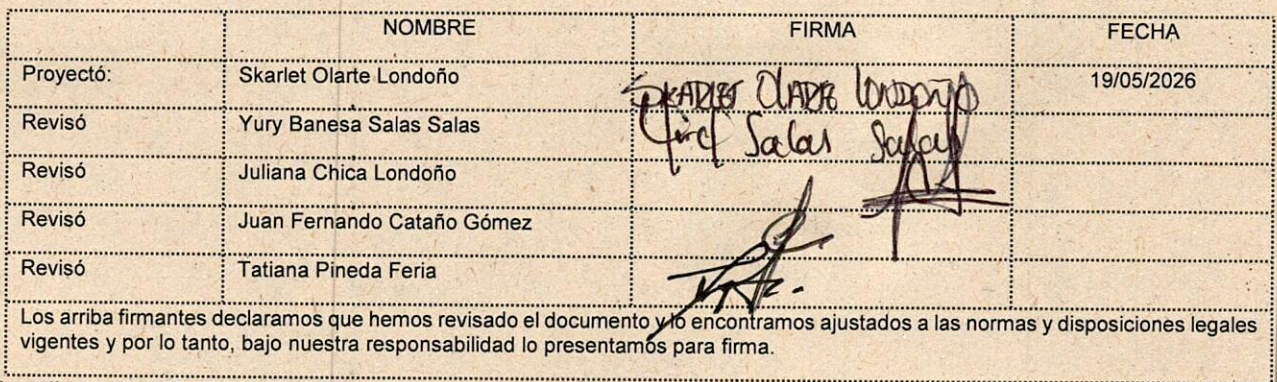 NOMBRE FIRMA FECHA
Proyectó: Skarlet Olarte Londoño SKARLET OLARTE LONDOÑO 19/05/2026
Revisó Yury Banesa Salas Salas Salas Salas
Revisó Juliana Chica Londoño
Revisó Juan Fernando Cataño Gómez
Revisó Tatiana Pineda Feria
Los arriba firmantes declaramos que hemos revisado el documento y lo encontramos ajustados a las normas y disposiciones legales
vigentes y por lo tanto, bajo nuestra responsabilidad lo presentamos para firma.